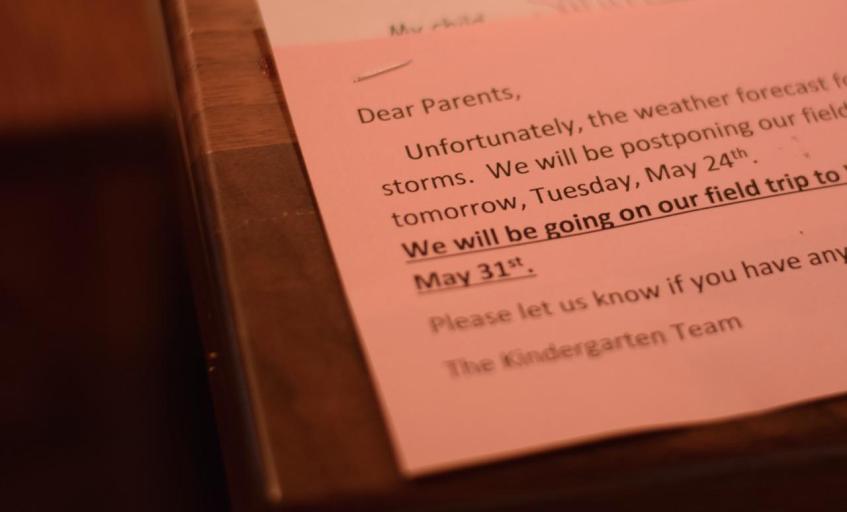 My child
Dear Parents,
Unfortunately, the weather forecast
storms. We will be postponing our field
tomorrow, Tuesday, May 24th.
We will be going on our field trip to
May 31st.
Please let us know if you have any
The Kindergarten Team